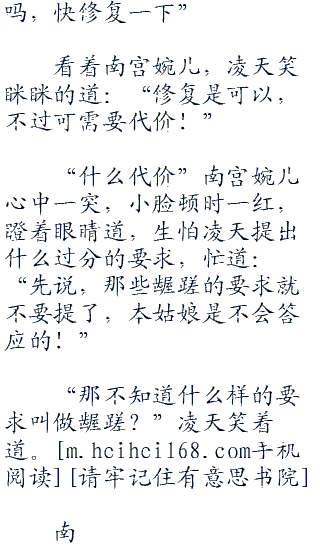 吗，快修复一下”
看着南宫婉儿，凌天笑
眯眯的道：“修复是可以，
不过可需要代价！”
“什么代价”南宫婉儿
心中一突，小脸顿时一红，
瞪着眼睛道，生怕凌天提出
什么过分的要求，忙道：
“先说，那些龌蹉的要求就
不要提了，本姑娘是不会答
应的！”
“那不知道什么样的要
求叫做龌蹉？”凌天笑着
道。[m.hcihcil68.com手机
阅读][请牢记住有意思书院]
南